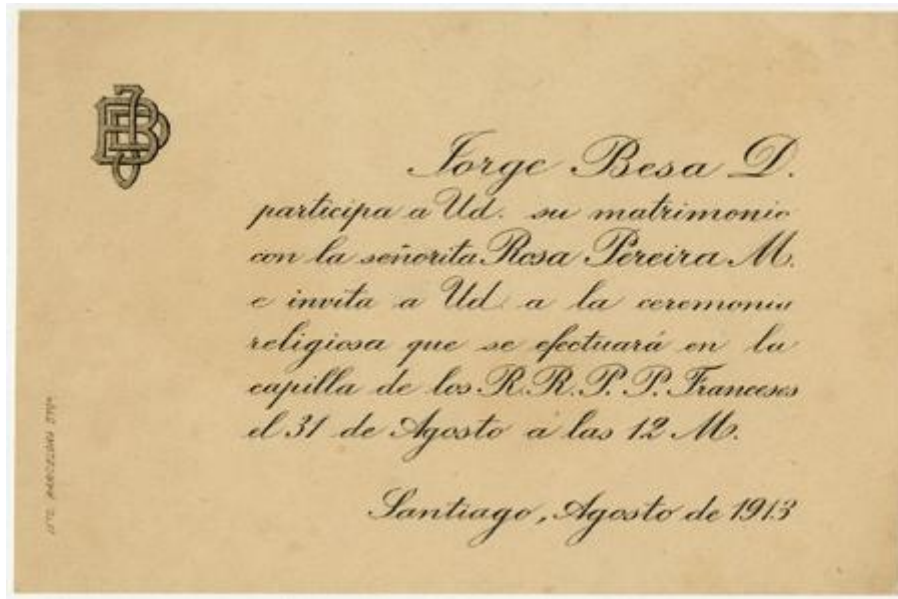 JBD
Jorge Besa D.
participa a Ud. su matrimonio
con la señorita Rosa Pereira M.
e invita a Ud. a la ceremonia
religiosa que se efectuará en la
capilla de los R.R.P.P. Franceses
el 31 de Agosto a las 12 M.
Santiago, Agosto de 1913
BARCELONA